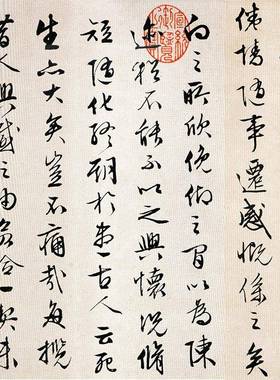 倦情隨事遷感慨係之矣
向之所欣俛仰之間以為陳
迹猶不能不以之興懷況脩
短隨化終期於盡古人云死
生亦大矣豈不痛哉每攬
昔人興感之由若合一契未